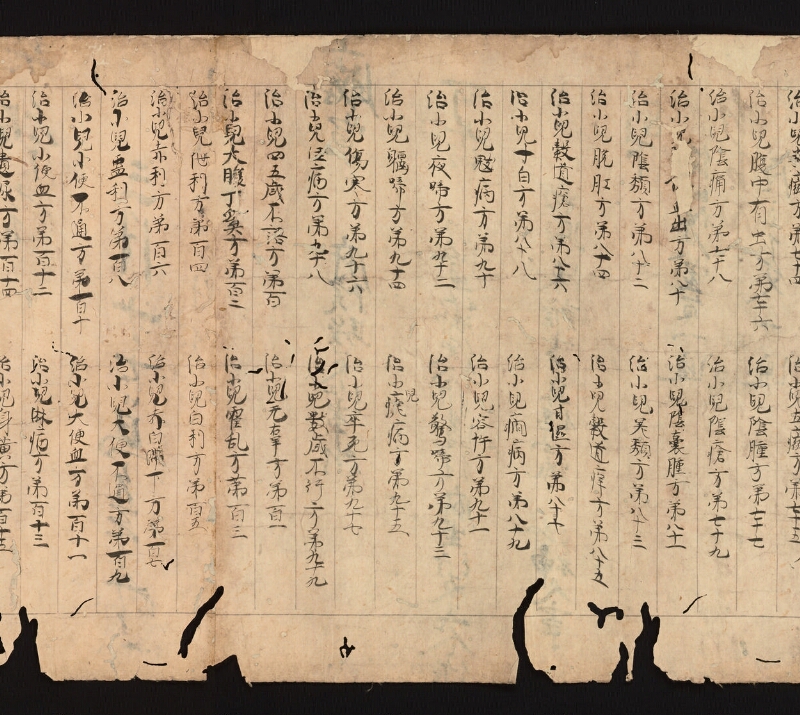 治小兒方第七十四　治小兒五方第七十五
治小兒腹中有虫方第七十六　治小兒陰腫方第七十七
治小兒陰痛方第七十八　治小兒陰瘡方第七十九
治小兒出方第八十　治小兒陰囊腫方第八十一
治小兒陰頹方第八十二　治小兒頹方第八十三
治小兒脫肛方第八十四　治小兒穀道痒方第八十五
治小兒穀道瘡方第八十六　治小兒疳湿方第八十七
治小兒寸白方第八十八　治小兒癎病方第八十九
治小兒魃病方第九十　治小兒客忤方第九十一
治小兒夜啼方第九十二　治小兒驚啼方第九十三
治小兒躽啼方第九十四　治小兒瘧病方第九十五
治小兒傷寒方第九十六　治小兒卒死方第九十七
治小兒注病方第九十八　治小兒數歲不行方第九十九
治小兒四五歲不語方第百　治小兒无辜方第百一
治小兒大腹丁奚方第百二　治小兒霍乱方第百三
治小兒泄利方第百四　治小兒白利方第百五
治小兒赤利方第百六　治小兒赤白滯下方第百七
治小兒蠱利方第百八　治小兒大便不通方第百九
治小兒小便不通方第百十　治小兒大便血方第百十一
治小兒小便血方第百十二　治小兒淋病方第百十三
治小兒遺尿方第百十四　治小兒身黃方第百十五